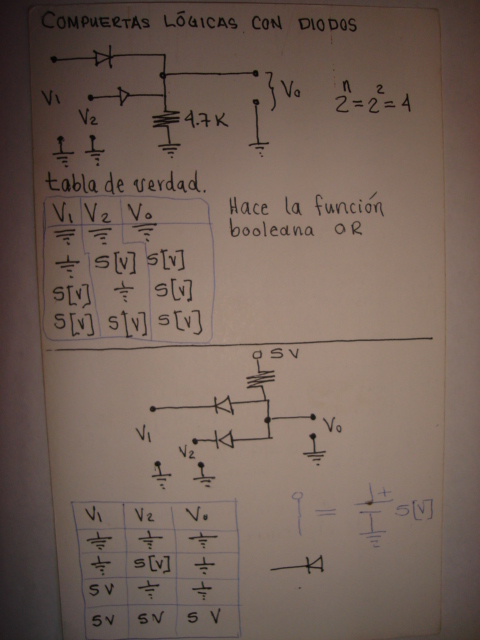 COMPUERTAS LÓGICAS CON DIODOS
V1
V2
4.7K
Vo
2^n = 2^2 = 4
tabla de verdad.
V1 V2 Vo
5[V] 5[V]
5[V] 5[V]
5[V] 5[V] 5[V]
Hace la función
booleana OR
5V
V1
V2
Vo
V1 V2 Vo
5[V]
5V
5V 5V 5V
= + 5[V]